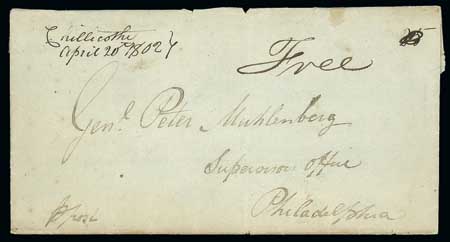 Chillicothe
April 20th 1802
Free
25
Genl. Peter Muhlenberg
Supervisors Office
Philadelphia
p post